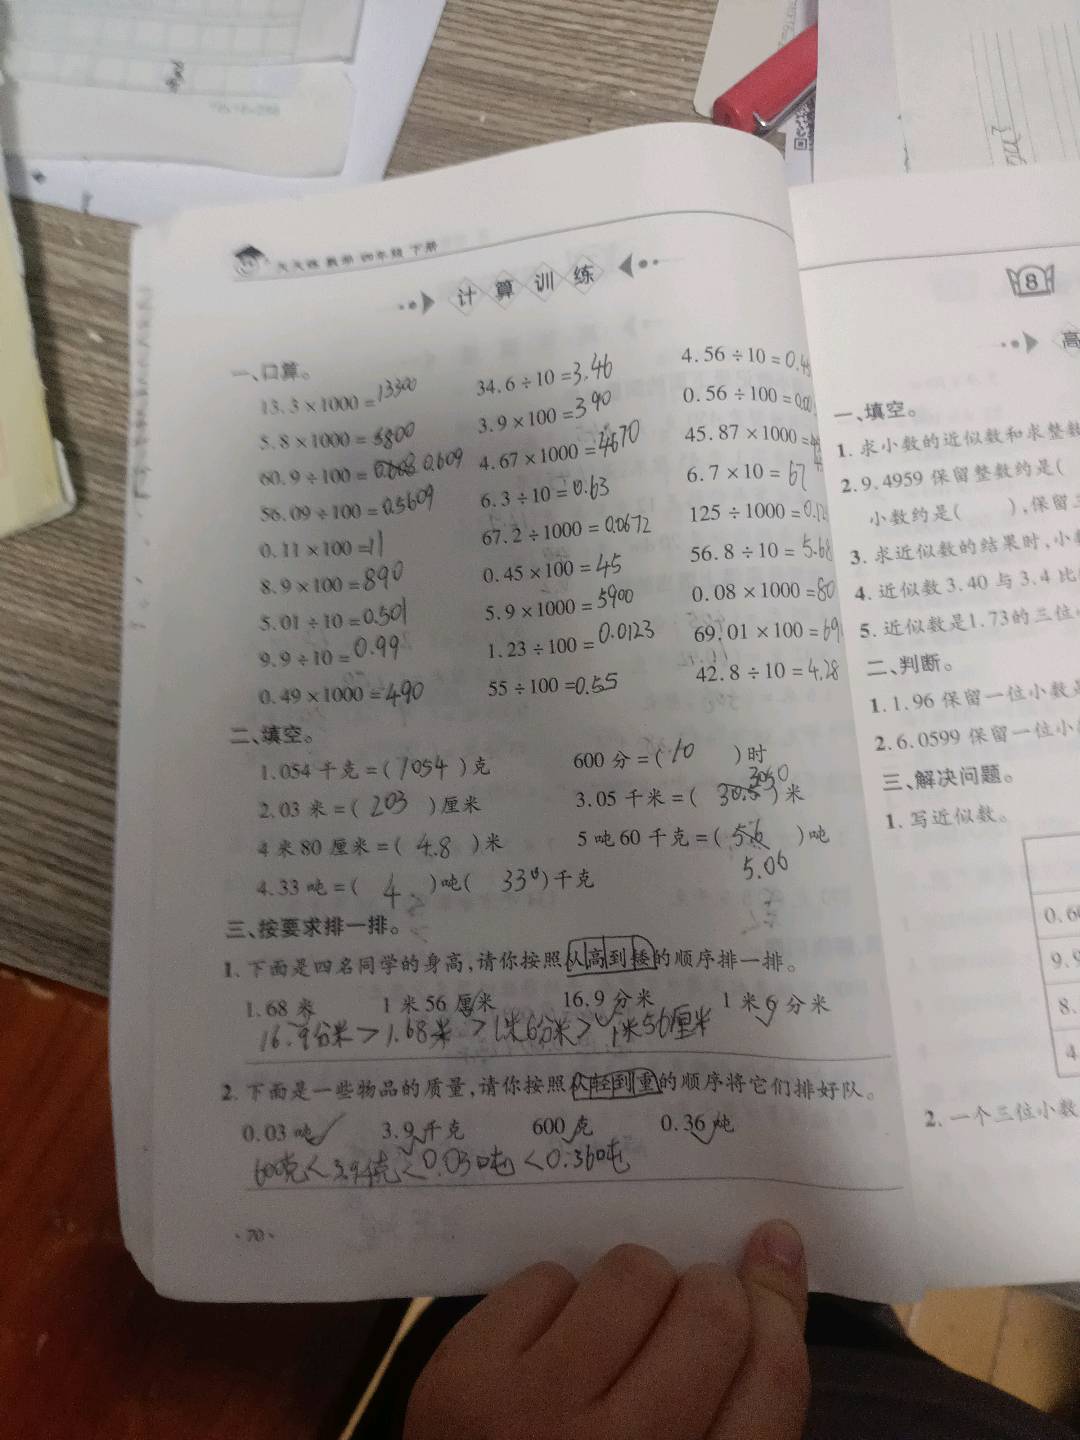 天天练 数学 四年级 下册
计算训练
一、口算。
13.3×1000=13300
34.6÷10=3.46
4.56÷10=0.4
5.8×1000=5800
3.9×100=390
0.56÷100=0.00
60.9÷100=0.609
4.67×1000=4670
45.87×1000=
56.09÷100=0.5609
6.3÷10=0.63
6.7×10=67
0.11×100=11
67.2÷1000=0.0672
125÷1000=0.12
8.9×100=890
0.45×100=45
56.8÷10=5.68
5.01÷10=0.501
5.9×1000=5900
0.08×1000=80
9.9÷10=0.99
1.23÷100=0.0123
69.01×100=69
0.49×1000=490
55÷100=0.55
42.8÷10=4.28
二、填空。
1.054千克=(1054)克
600分=(10)时
2.03米=(203)厘米
3050
3.05千米=(30.5)米
4米80厘米=(4.8)米
5吨60千克=(5.6)吨
5.06
4.33吨=(4)吨(330)千克
三、按要求排一排。
1.下面是四名同学的身高,请你按照从高到矮的顺序排一排。
1.68米 1米56厘米 16.9分米 1米6分米
16.9分米>1.68米>1米6分米>1米56厘米
2.下面是一些物品的质量,请你按照从轻到重的顺序将它们排好队。
0.03吨 3.9千克 600克 0.36吨
600克<3.9千克<0.03吨<0.36吨
·70·
8
高
一、填空。
1.求小数的近似数和求整数
2.9.4959保留整数约是(
小数约是( ),保留
3.求近似数的结果时,小
4.近似数3.40与3.4比
5.近似数是1.73的三位
二、判断。
1.1.96保留一位小数是
2.6.0599保留一位小
三、解决问题。
1.写近似数。
0.6
9.9
8.
4
2.一个三位小数